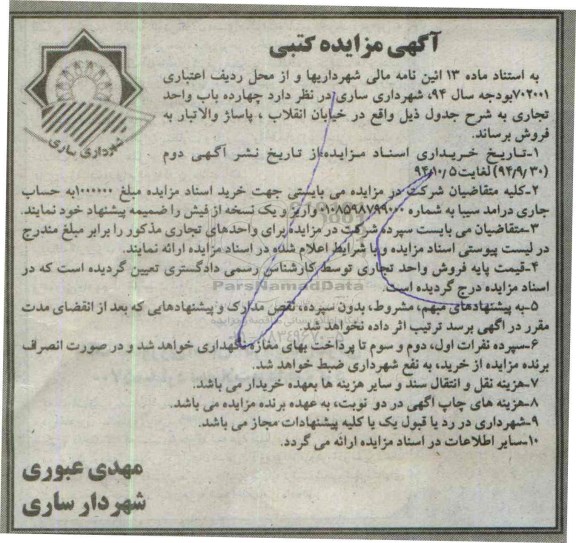 آگهی مزایده کتبی
شهرداری ساری
به استناد ماده ۱۳ ائین نامه مالی شهرداریها و از محل ردیف اعتباری
۷۰۲۰۰۱بودجه سال ۹۴، شهرداری ساری در نظر دارد چهارده باب واحد
تجاری به شرح جدول ذیل واقع در خیابان انقلاب ، پاساژ والاتبار به
فروش برساند.
۱-تاریخ خریداری اسناد مزایده:از تاریخ نشر آگهی دوم
(۹۴/۹/۳۰) لغایت۹۴/۱۰/۵
۲-کلیه متقاضیان شرکت در مزایده می بایستی جهت خرید اسناد مزایده مبلغ ۱۰۰۰۰۰۰به حساب
جاری درامد سیبا به شماره ۰۱۰۸۵۹۸۷۹۹۰۰۰ واریز و یک نسخه از فیش را ضمیمه پیشنهاد خود نمایند.
۳-متقاضیان می بایست سپرده شرکت در مزایده برای واحدهای تجاری مذکور را برابر مبلغ مندرج
در لیست پیوستی اسناد مزایده و با شرایط اعلام شده در اسناد مزایده ارائه نمایند.
۴-قیمت پایه فروش واحد تجاری توسط کارشناس رسمی دادگستری تعیین گردیده است که در
اسناد مزایده درج گردیده است.
ParsNamadData
۵-به پیشنهادهای مبهم، مشروط، بدون سپرده، نقص مدارک و پیشنهادهایی که بعد از انقضای مدت
مقرر در آگهی برسد ترتیب اثر داده نخواهد شد
۶-سپرده نفرات اول، دوم و سوم تا پرداخت بهای مغازه نگهداری خواهد شد و در صورت انصراف
برنده مزایده از خرید، به نفع شهرداری ضبط خواهد شد.
۷-هزینه نقل و انتقال سند و سایر هزینه ها بعهده خریدار می باشد.
۸-هزینه های چاپ اگهی در دو نوبت، به عهده برنده مزایده می باشد.
۹-شهرداری در رد یا قبول یک یا کلیه پیشنهادات مجاز می باشد.
۱۰-سایر اطلاعات در اسناد مزایده ارائه می گردد.
مهدی عبوری
شهردار ساری